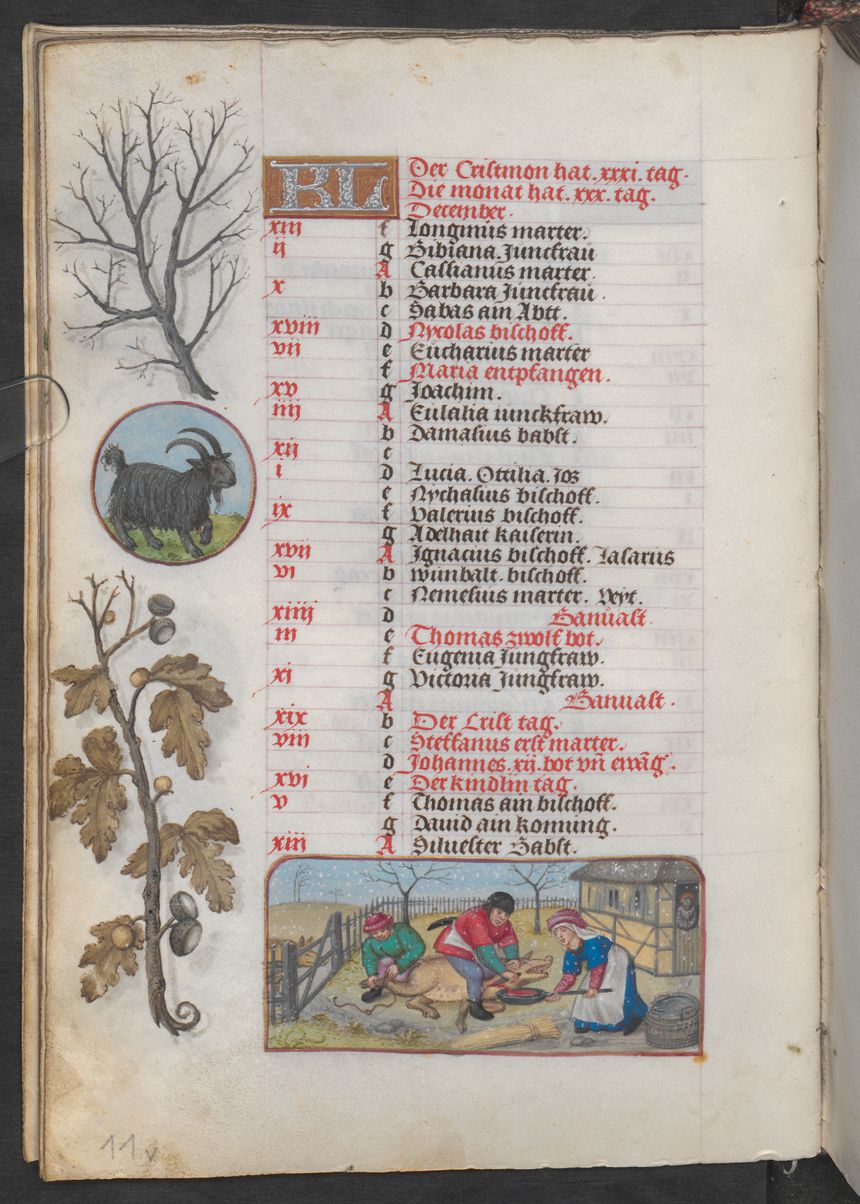 KL Der Cristmon hat .xxxi. tag.
Die monat hat .xxx. tag.
December.
xiii f Longinus marter.
ii g Bibiana Junckfrau
A Cassianus marter.
x b Barbara Junckfrau.
c Sabas ain Abtt.
xviii d Nycolas bischoff.
vii e Eucharius marter
f Maria entpfangen.
xv g Joachim.
iiii A Eulalia iunckfraw.
b Damasius babst.
xii c
i d Lucia. Ottilia. Jos
e Nychasius bischoff.
ix f Valerius bischoff.
g Adelhait kaiserin.
xvii A Ignacius bischoff. Lasarus
vi b wunbalt. bischoff.
c Nemesius marter. Veyt.
xiiii d Banuast
iii e Thomas zwolf bot.
f Eugenia Jungfraw.
xi g Victoria Jungfraw.
A Banuast.
xix b Der Crist tag.
viii c Steffanus erst marter.
d Johannes .xii. bot vn̄ ewāg.
xvi e Der kindlin tag.
v f Thomas ain bischoff.
g Dauid ain konning.
xiii A Siluester Babst.
11v